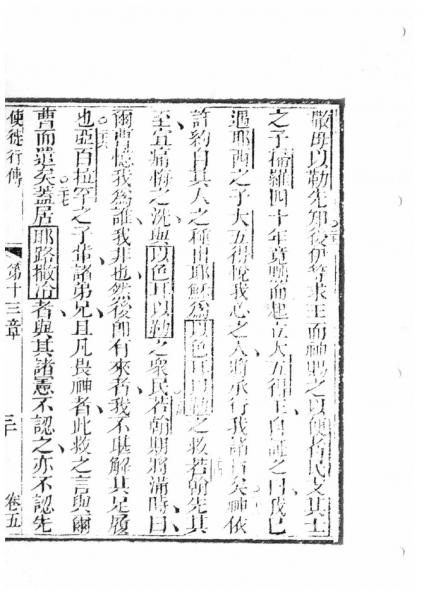 撒母以勒先知後伊等求王而神賜之以便者民支其士
之子掃羅四十年竟黜而起立大五得王自証之曰我已
遇耶西之子大五得悅我心之人將承行我諸旨矣神依
許約自其人之種出耶穌為以色耳以勒之救若翰先其
至宣痛悔之洗與以色耳以勒之衆民若翰期將滿時曰
爾曹憶我為誰我非也然後卽有來者我不堪解其足履
也亞百拉罕之子輩諸弟兄且凡畏神者此救之言與爾
曹而遣矣蓋居耶路撒冷者與其諸憲不認之亦不認先
使徒行傳 第十三章 三十 卷五